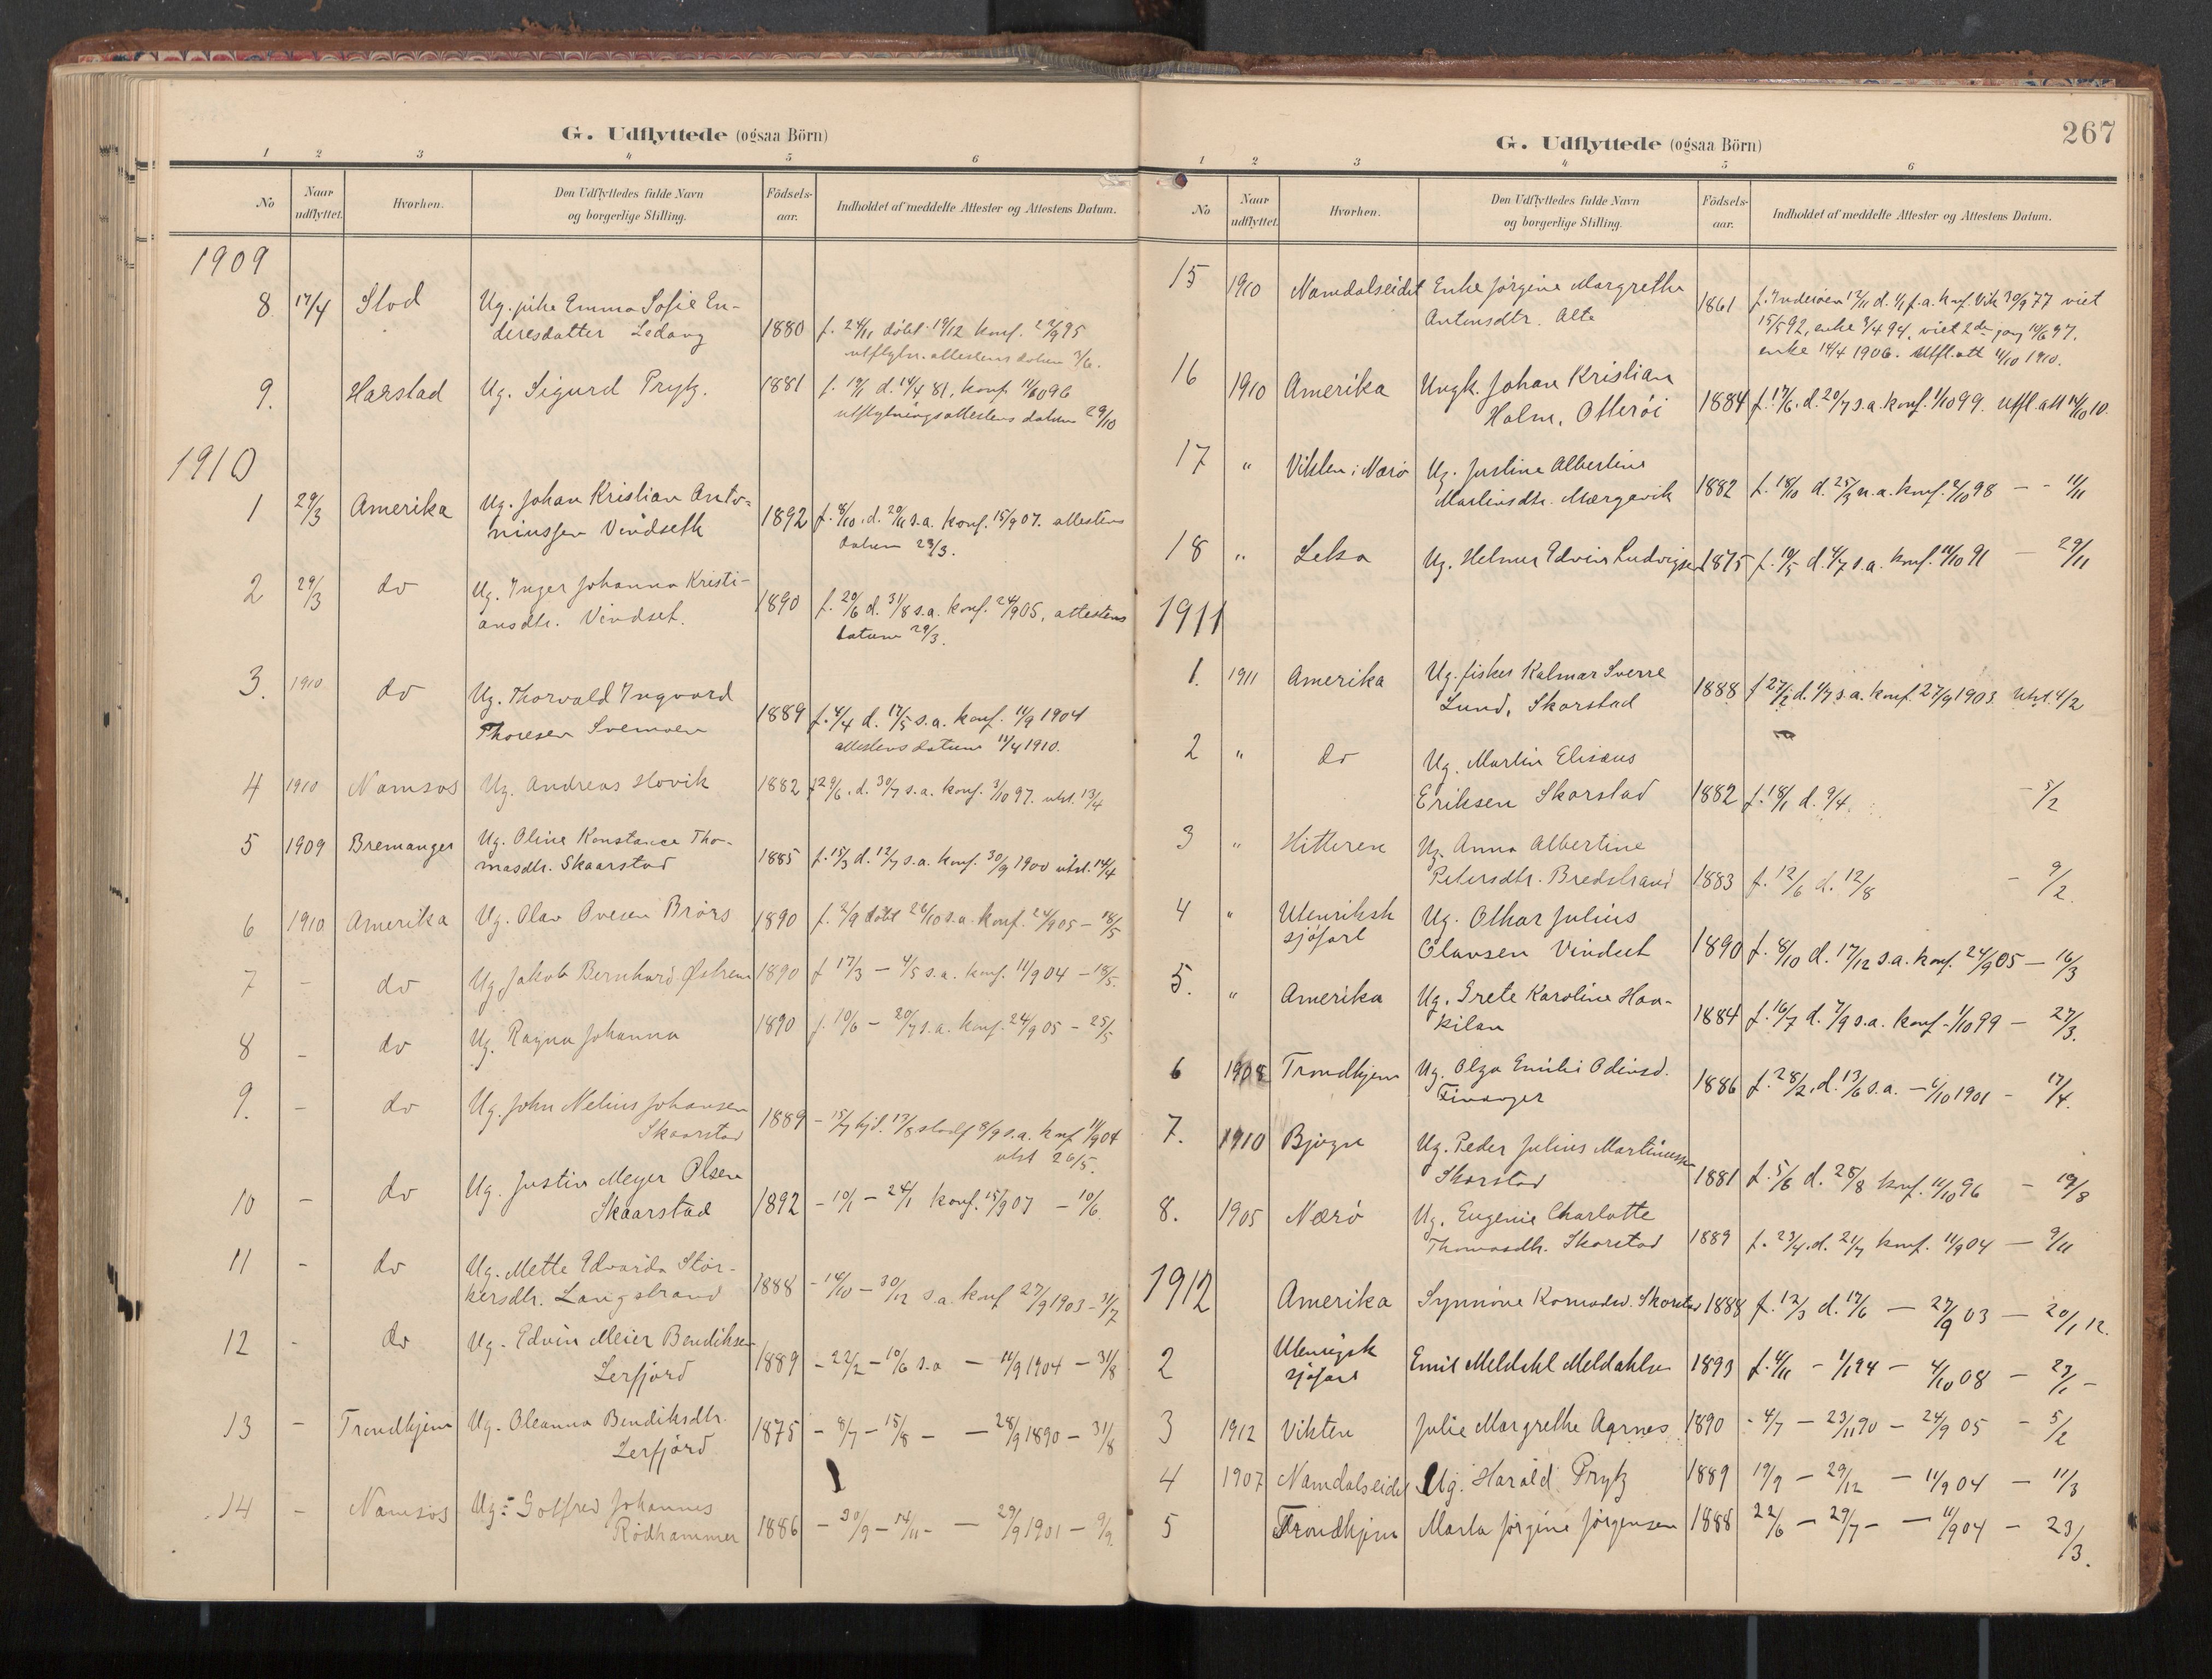 G. Udflyttede (ogsaa Börn)
1 2 3 4 5 6
No
Naar udflyttet.
Hvorhen.
Den Udflyttedes fulde Navn
og borgerlige Stilling.
Födsels-
aar.
Indholdet af meddelte Attester og Attestens Datum.
1909
8 17/4 Stod Ug. pike Emma Sofie En-
deresdatter Ledang 1880 f. 24/11 døbt 19/12 konf. 22/9 95
utflytn. attestens datum 3/6.
9. Harstad Ug. Sigurd Prytz. 1881 f. 19/1 d. 14/4 81, konf. 11/10 96
utflytningsattestens datum 29/10
1910
1 29/3 Amerika Ug. Johan Kristian Anto-
niussen Vindseth 1892 f. 8/10. d. 20/11 s.a. konf. 15/9 07. attestens
datum 29/3.
2 29/3 do Ug. Inger Johanna Kristi-
ansdtr. Vindset. 1890 f. 20/6 d. 31/8 s.a. konf. 24/9 05, attestens
datum 29/3.
3. 1910 do Ug. Thorvald Ingvard
Thoresen Svemoen 1889 f. 4/4 d. 17/5 s.a. konf. 11/9 1904
attestens datum 11/4 1910.
4 1910 Namsos Ug. Andreas Hovik 1882 f 29/6. d. 30/7 s.a. konf. 3/10 97. utst. 13/4
5 1909 Bremanger Ug. Oline Konstance Tho-
masdtr. Skaarstad 1885 f. 15/3 d. 12/7 s.a. konf. 30/9 1900 utst. 14/4
6 1910 Amerika Ug. Olav Ovesen Brörs 1890 f. 2/9 døbt 26/10 s.a. konf. 24/9 05 – 18/5
7 – do Ug. Jakob Bernhard Østrem 1890 f 17/3 – 4/5 s.a. konf. 11/9 04 – 18/5.
8 – do Ug. Ragna Johanna 1890 f. 10/6 – 20/7 s.a. konf. 24/9 05 – 25/5
9. – do Ug. John Nelius Johansen
Skaarstad 1889 – 15/7 hjd. 13/8 stadf 8/9 s.a. konf 11/9 04
utst 26/5.
10 – do Ug. Justin Meyer Olsen
Skaarstad 1892 – 10/1 – 24/1 konf. 15/9 07 – 10/6.
11 – do Ug. Mette Edvarda Stör-
kersdtr. Langstrand 1888 – 14/10 – 30/12 s.a. konf 27/9 1903 – 31/7
12 – do Ug. Edvin Meier Bendiksen
Lerfjord 1889 – 22/2 – 10/6 s.a – 11/9 1904 – 31/8
13 – Trondhjem Ug. Oleanna Bendiksdtr.
Lerfjord 1875 – 8/7 – 15/8 – – 28/9 1890 – 31/8
14 – Namsos Ug. Gotfred Johannes
Rödhammer 1886 – 30/9 – 14/11 – – 29/9 1901 – 9/9.
267
G. Udflyttede (ogsaa Börn)
1 2 3 4 5 6
No
Naar udflyttet.
Hvorhen.
Den Udflyttedes fulde Navn
og borgerlige Stilling.
Födsels-
aar.
Indholdet af meddelte Attester og Attestens Datum.
15 1910 Namdalseidet Enke Jörgine Margrethe
Antonsdtr. Alte 1861 f. Inderöen 12/11 d. 1/1 f.a. konf. Vik 30/9 77 viet
15/5 92, enke 3/4 94. viet 2den gang 14/6 97.
enke 14/4 1906. Utfl. att 11/10 1910.
16 1910 Amerika Ungk. Johan Kristian
Holm, Otteröi 1884 f. 17/6. d. 20/7 s.a. konf. 1/10 99. utfl. att 14/10 10.
17 " Vikten i Nærö Ug. Justine Albertine
Martinsdtr. Mærgavik 1882 f. 18/10 d. 25/3 n.a. konf. 2/10 98 – – 11/11
18 " Leka Ug. Helmer Edvin Ludvigsen 1875 f. 10/5 d. 4/7 s.a. konf. 11/10 91 – 29/11
1911
1. 1911 Amerika Ug. fisker Kalmar Sverre
Lund, Skorstad 1888 f 27/2 d. 1/7 s.a. konf. 27/9 1903. utst. 4/2
2 " do Ug. Martin Elisæus
Eriksen Skorstad 1882 f. 18/1 d. 9/4. – 5/2
3 " Hitteren Ug. Anna Albertine
Petersdtr. Bredstrand 1883 f. 12/6 d. 12/8 – 9/2.
4 " Utenriksk
sjöfart Ug. Othar Julius
Olausen Vindset 1890 f. 8/10 d. 17/12 s.a. konf. 24/9 05 – 16/3
5. " Amerika Ug. Grete Karoline Haa-
kilan 1884 f. 16/7 d. 7/9 s.a. konf. 1/10 99 – 27/3.
6 1908 Trondhjem Ug. Olga Emilie Odinsd.
Finanger 1886 f. 28/2. d. 13/6 s.a. – 6/10 1901 – 17/4.
7. 1910 Bjugn Ug. Peder Julius Martinussen
Skorstad 1881 f. 5/6 d. 28/8 konf. 11/10 96 – 19/8
8. 1905 Nærö Ug. Eugenie Charlotte
Thomasdtr. Skorstad 1889 f. 23/4. d. 21/7 konf. 11/9 04 – 9/11
1912 Amerika Synnöve Konradsd. Skorstad 1888 f. 12/3 d. 17/6 – 27/9 03 – 20/1 12.
2 Utenrigsk
sjöfart Emil Meldahl Meldahlsen 1893 f. 4/11 – 1/1 94 – 4/10 08 – 27/1 –
3 1912 Vikten Julie Margrethe Agrnes 1890 – 4/7 – 23/11 90 – 24/9 05 – 5/2
4 1907 Namdalseidet Ug. Harald Prytz 1889 19/9 – 29/12 – 11/9 04 – 11/3
5 Trondhjem Marta Jörgine Jörgensen 1888 22/6 – 29/7 – – 11/9 04 – 23/3.